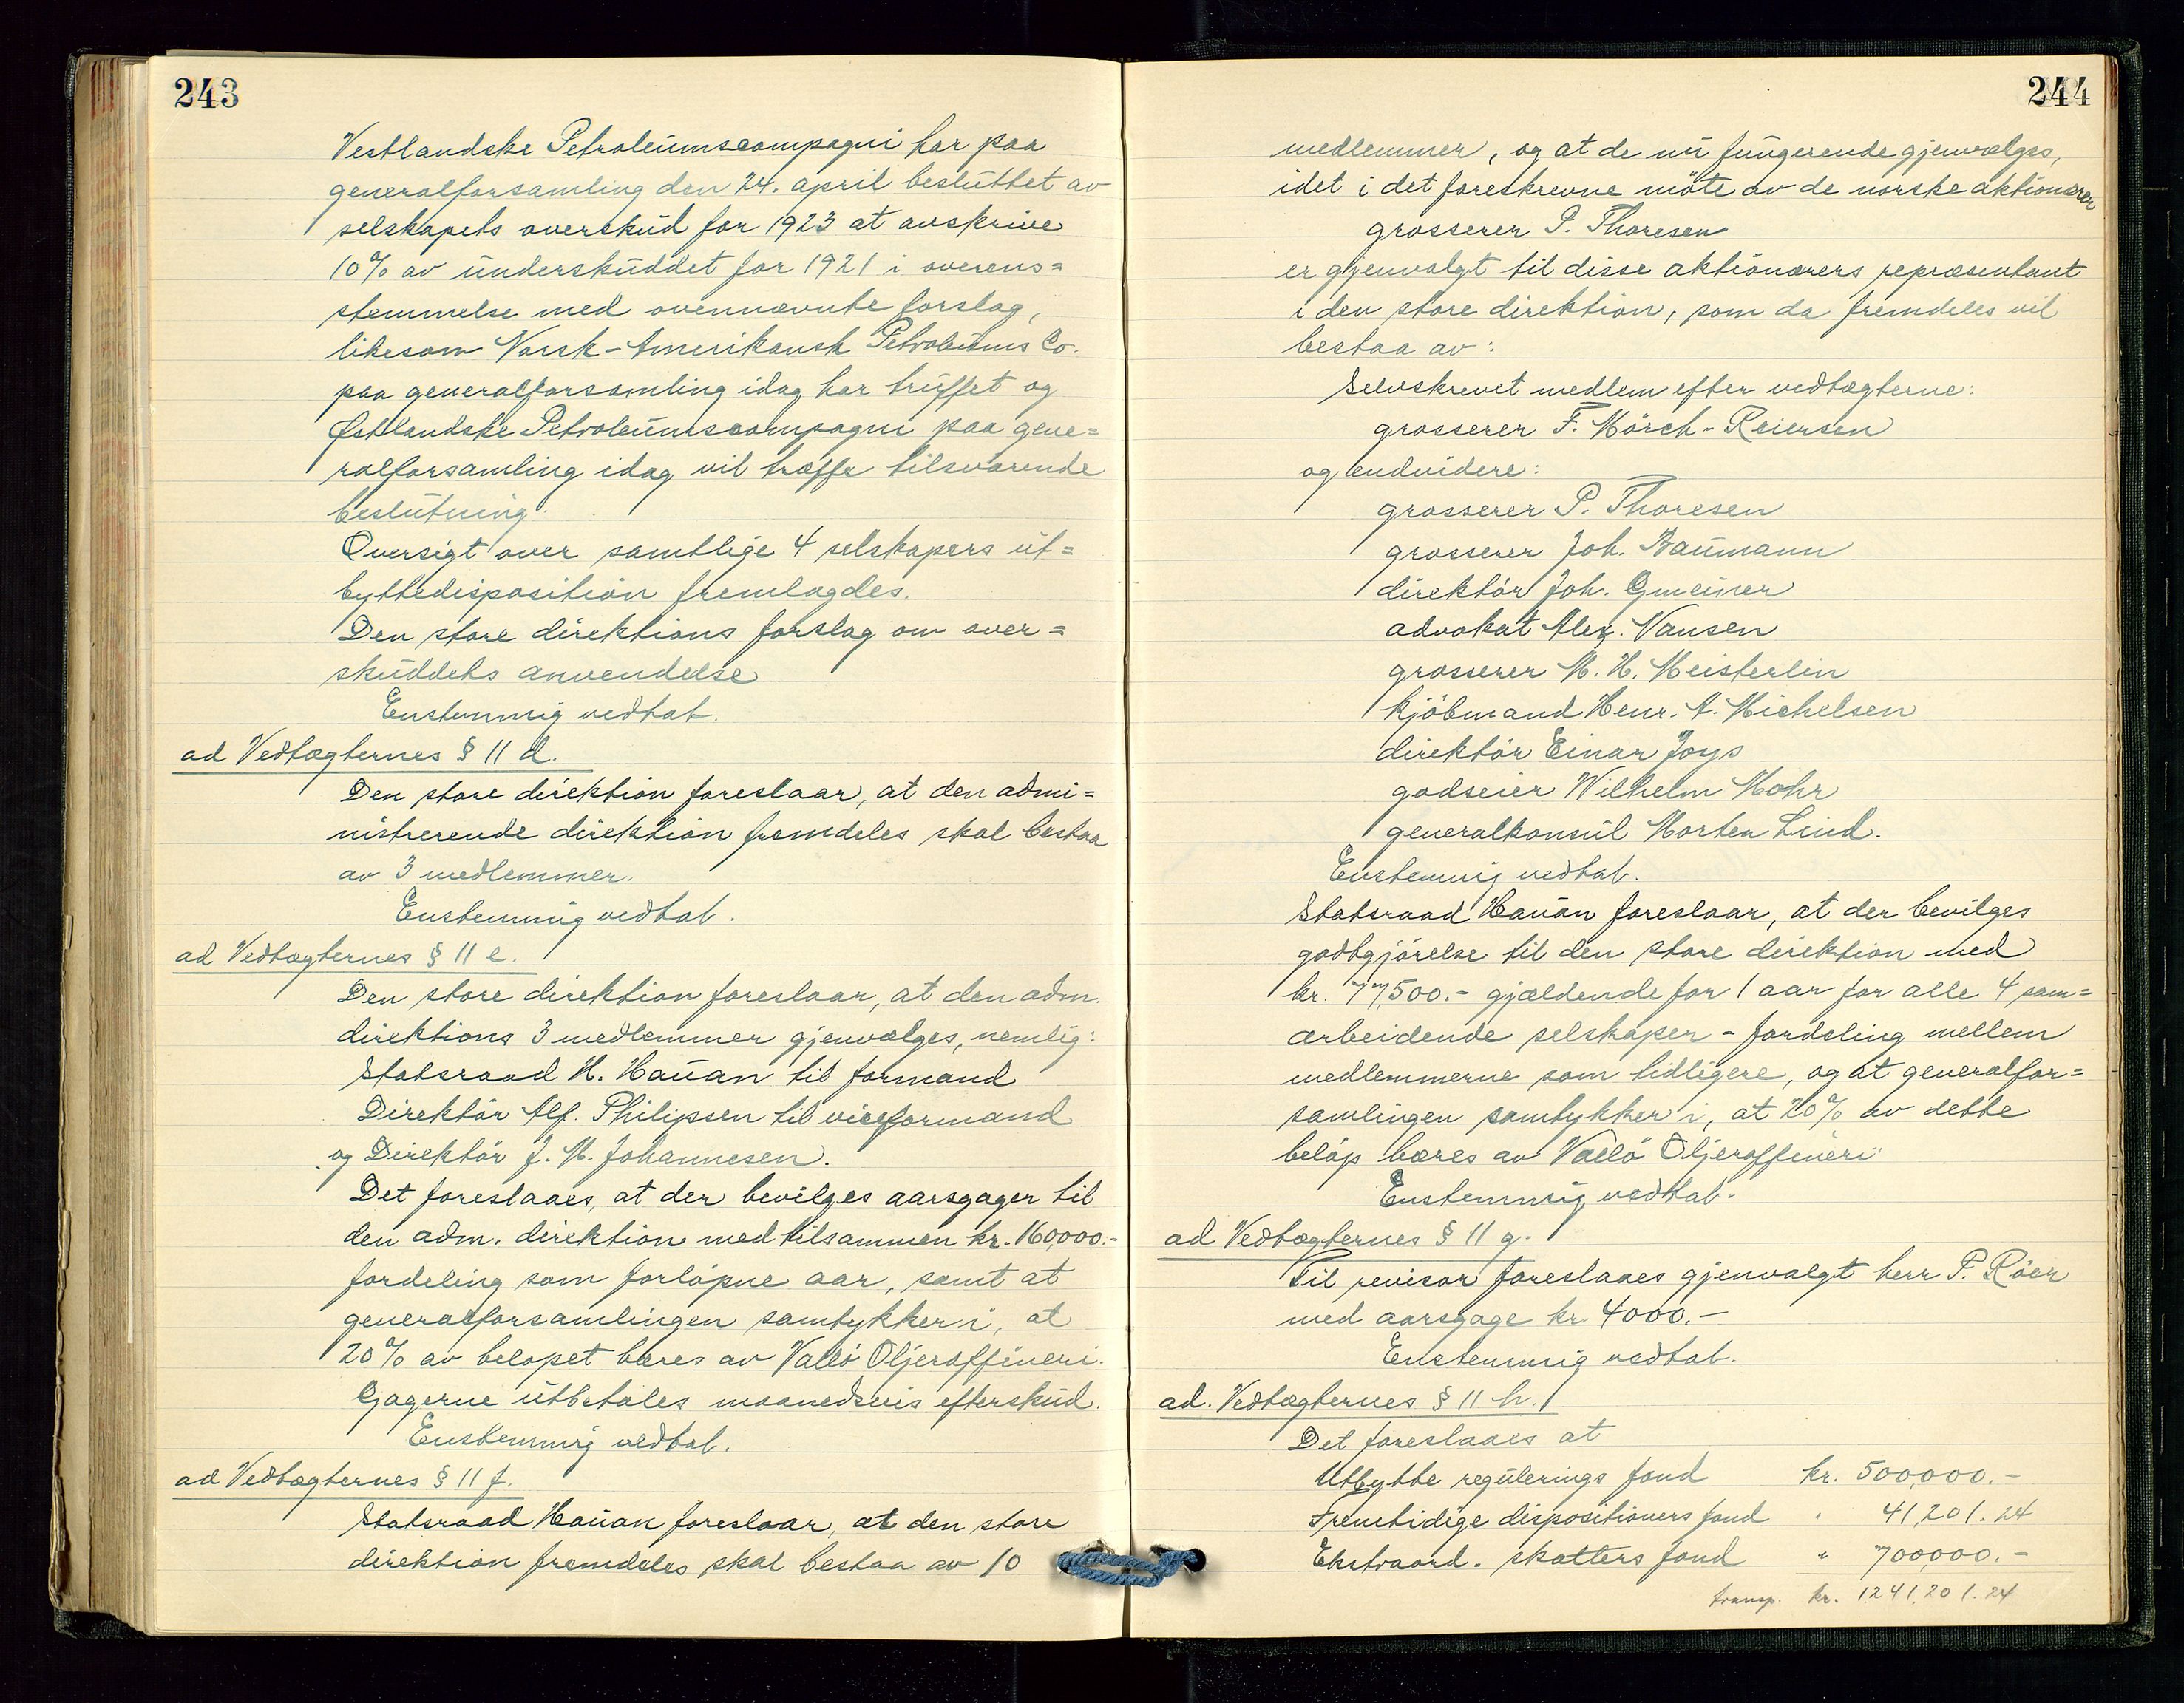 243
Vestlandske Petroleumscompagni har paa
generalforsamling den 24. april besluttet av
selskapets overskud for 1923 at avskrive
10% av underskuddet for 1921 i overens=
stemmelse med ovennævnte forslag,
likesom Norsk-Amerikansk Petroleums Co.
paa generalforsamling idag har truffet og
Østlandske Petroleumscompagni paa gene=
ralforsamling idag vil træffe tilsvarende
beslutning.
Oversigt over samtlige 4 selskapers ut=
byttedisposition fremlagdes.
Den store direktions forslag om over=
skuddets anvendelse
Enstemmig vedtat.
ad Vedtægternes § 11 d.
Den store direktion foreslaar, at den admi=
nistrerende direktion fremdeles skal bestaa
av 3 medlemmer.
Enstemmig vedtat.
ad Vedtægternes § 11 e.
Den store direktion foreslaar, at den adm.
direktions 3 medlemmer gjenvælges, nemlig:
Statsraad H. Hauan til formand
Direktör Alf. Philipsen til viceformand
og Direktör J. M. Johannesen.
Det foreslaaes, at der bevilges aarsgager til
den adm. direktion med tilsammen kr. 160,000.-
fordeling som forløpne aar, samt at
generalforsamlingen samtykker i, at
20% av beløpet bæres av Vallö Oljeraffineri.
Gagerne utbetales maanedsvis efterskud.
Enstemmig vedtat.
ad Vedtægternes § 11 f.
Statsraad Hauan foreslaar, at den store
direktion fremdeles skal bestaa av 10
244
medlemmer, og at de nu fungerende gjenvælges,
idet i det foreskrevne möte av de norske aktionærer
grosserer P. Thoresen
er gjenvalgt til disse aktionærers repræsentant
i den store direktion, som da fremdeles vil
bestaa av:
Selvskrevet medlem efter vedtægterne:
grosserer F. Mörch-Reiersen
og endvidere:
grosserer P. Thoresen
grosserer Joh. Baumann
direktör Joh. Gmeiner
advokat Alex. Nansen
grosserer M. H. Meisterlin
kjöbmand Henr. A. Michelsen
direktör Einar Joys
godseier Wilhelm Mohr
generalkonsul Morten Lind.
Enstemmig vedtat.
Statsraad Hauan foreslaar, at der bevilges
godtgjörelse til den store direktion med
kr. 77,500.- gjældende for 1 aar for alle 4 sam=
arbeidende selskaper - fordeling mellem
medlemmerne som tidligere, og at generalfor=
samlingen samtykker i, at 20% av dette
beløp bæres av Vallö Oljeraffineri
Enstemmig vedtat.
ad Vedtægternes § 11 g.
Til revisor foreslaaes gjenvalgt herr P. Röer
med aarsgage kr. 4000.-
Enstemmig vedtat.
ad. Vedtægternes § 11 h.
Det foreslaaes at
Utbytte regulerings fond kr. 500,000.-
Fremtidige dispositioners fond " 41,201.24
Ekstraord. skatters fond " 700,000.-
transp. kr. 1,241,201.24